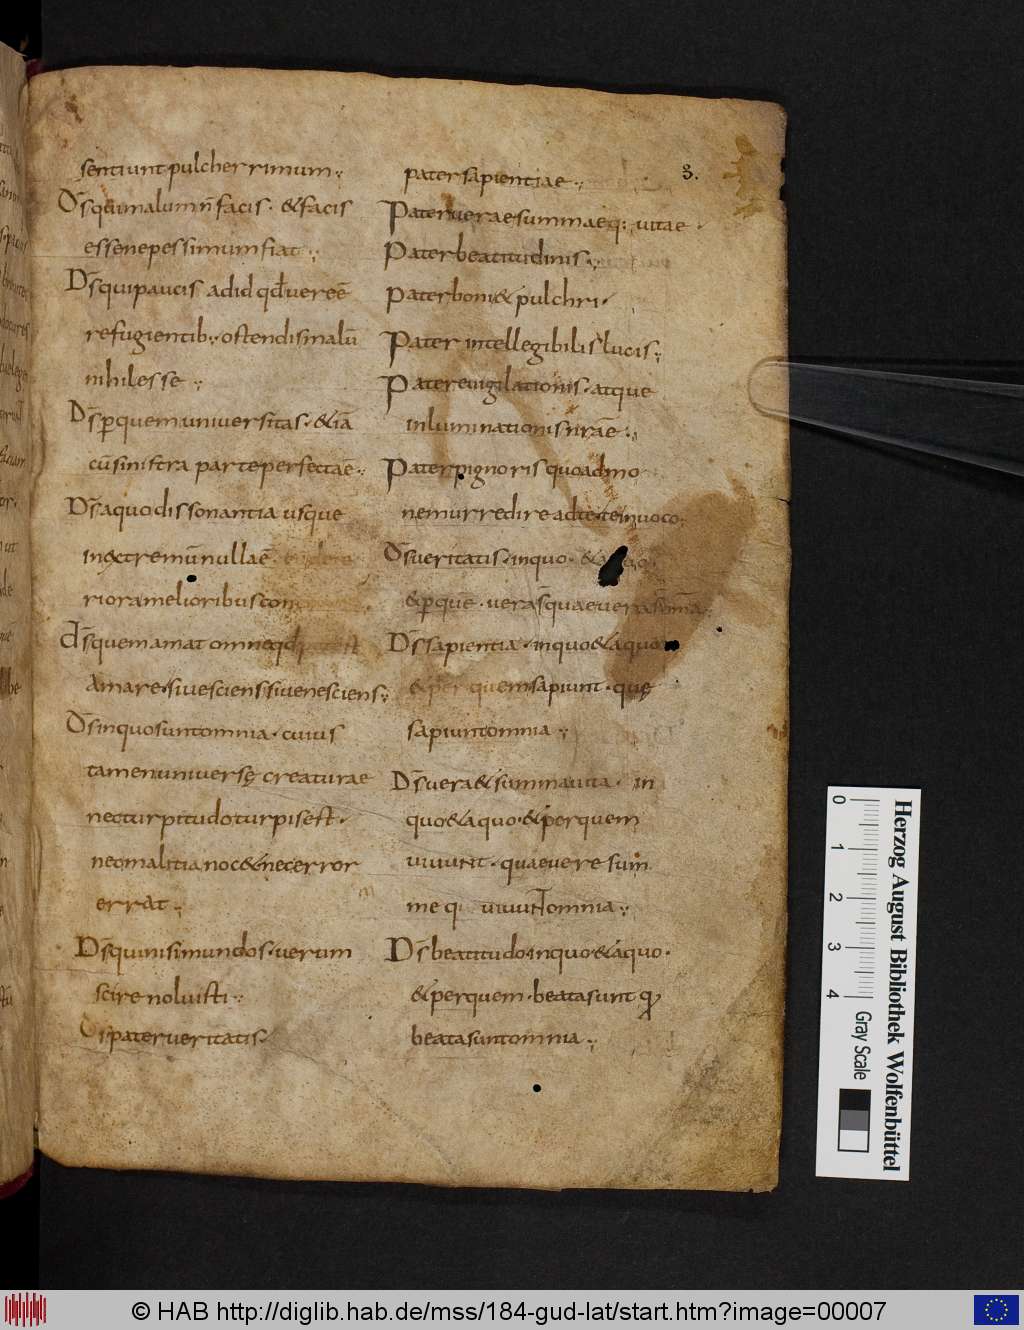 sentiunt pulcherrimum
Ds qui malum n̄ facis · & facis
esse ne pessimum fiat
Ds qui paucis ad id qđ vere ē
refugientib; ostendis malū
nihil esse
Ds p quem universitas · & iā
cū sinistra parte perfecta ē
Ds a quo dissonantia usque
in extremū nulla ē
riora melioribus con
ds quem amat omne qđ potest
amare · sive sciens sive nesciens
Ds in quo sunt omnia · cuius
tamen universę creaturae
nec turpitudo turpis est ·
nec malitia noc& nec error
errat
Ds qui nisi mundos · verum
scire noluisti
Ds pater veritatis
3.
pater sapientiae
Pater verae summaeq; vitae
Pater beatitudinis
Pater boni & pulchri ·
Pater intellegibilis lucis
Pater evigilationis · atque
inluminationis nrae
Pater pignoris quo admo
nemur redire ad te · te invoco
Ds veritatis · in quo · & a
& p quē · vera s̄ quae vera s̄ omīa
Ds sapientia · in quo & a quo
& per quem sapiunt · quę
sapiunt omnia
Ds vera & summa vita · in
quo & a quo · & per quem
vivunt · quae vere sum
me q vivunt omnia
Ds beatitudo in quo & a quo ·
& per quem · beata sunt q
beata sunt omnia
0
1
2
3
4
Gray Scale
Herzog August Bibliothek Wolfenbüttel
© HAB http://diglib.hab.de/mss/184-gud-lat/start.htm?image=00007